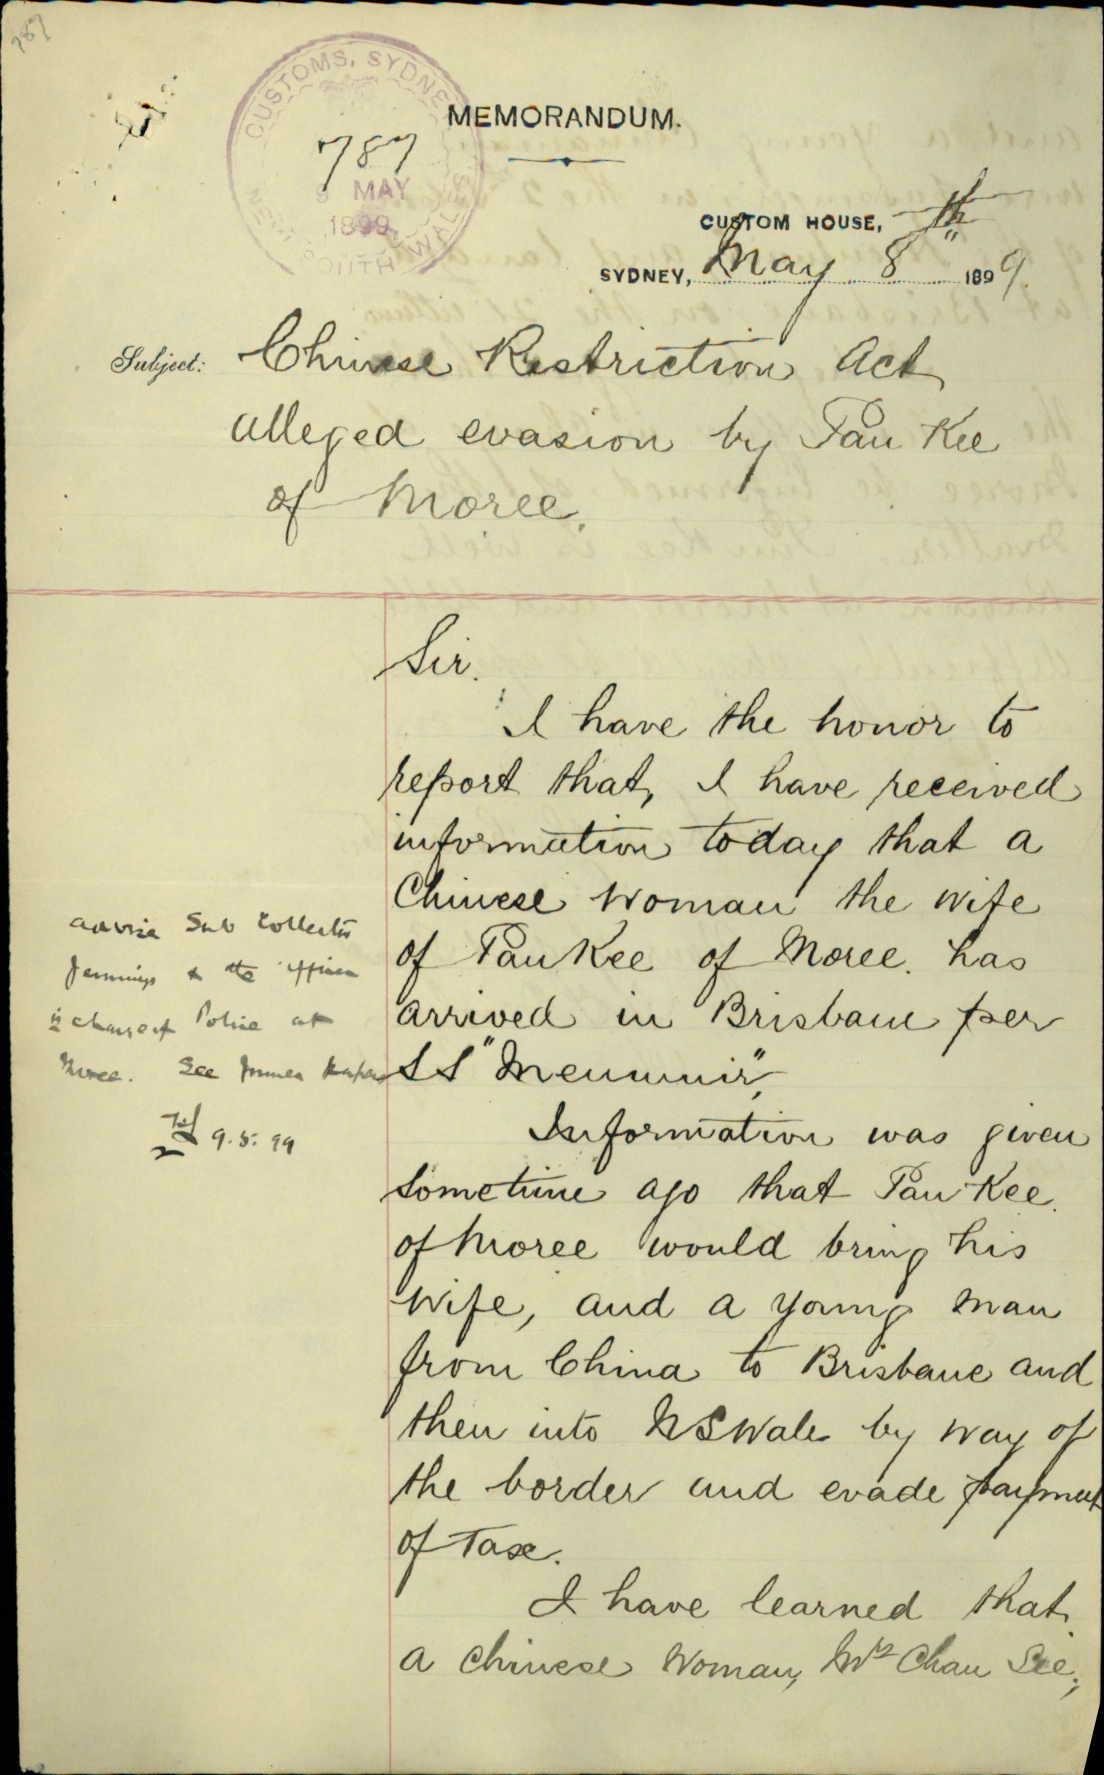 787
CUSTOMS, SYDNEY
NEW SOUTH WALES
787
MAY
1899
MEMORANDUM.
CUSTOM HOUSE, th
SYDNEY, May 8 1899.
Subject: Chinese Restriction Act
alleged evasion by Pau Kee
of Moree.
Sir.
I have the honor to
report that, I have received
information today that a
Chinese woman the wife
of Pau Kee of Moree. has
arrived in Brisbane per
SS "Menmuir",
Information was given
sometime ago that Pau Kee.
of Moree would bring his
wife, and a young man
from China to Brisbane and
then into NSWales by way of
the border and evade payment
of Tax.
I have learned that
a Chinese woman, Mrs Chau See,
advise Sub Collector
Jennings & the officer
in charge of Police at
Moree. See former papers
9.5.99